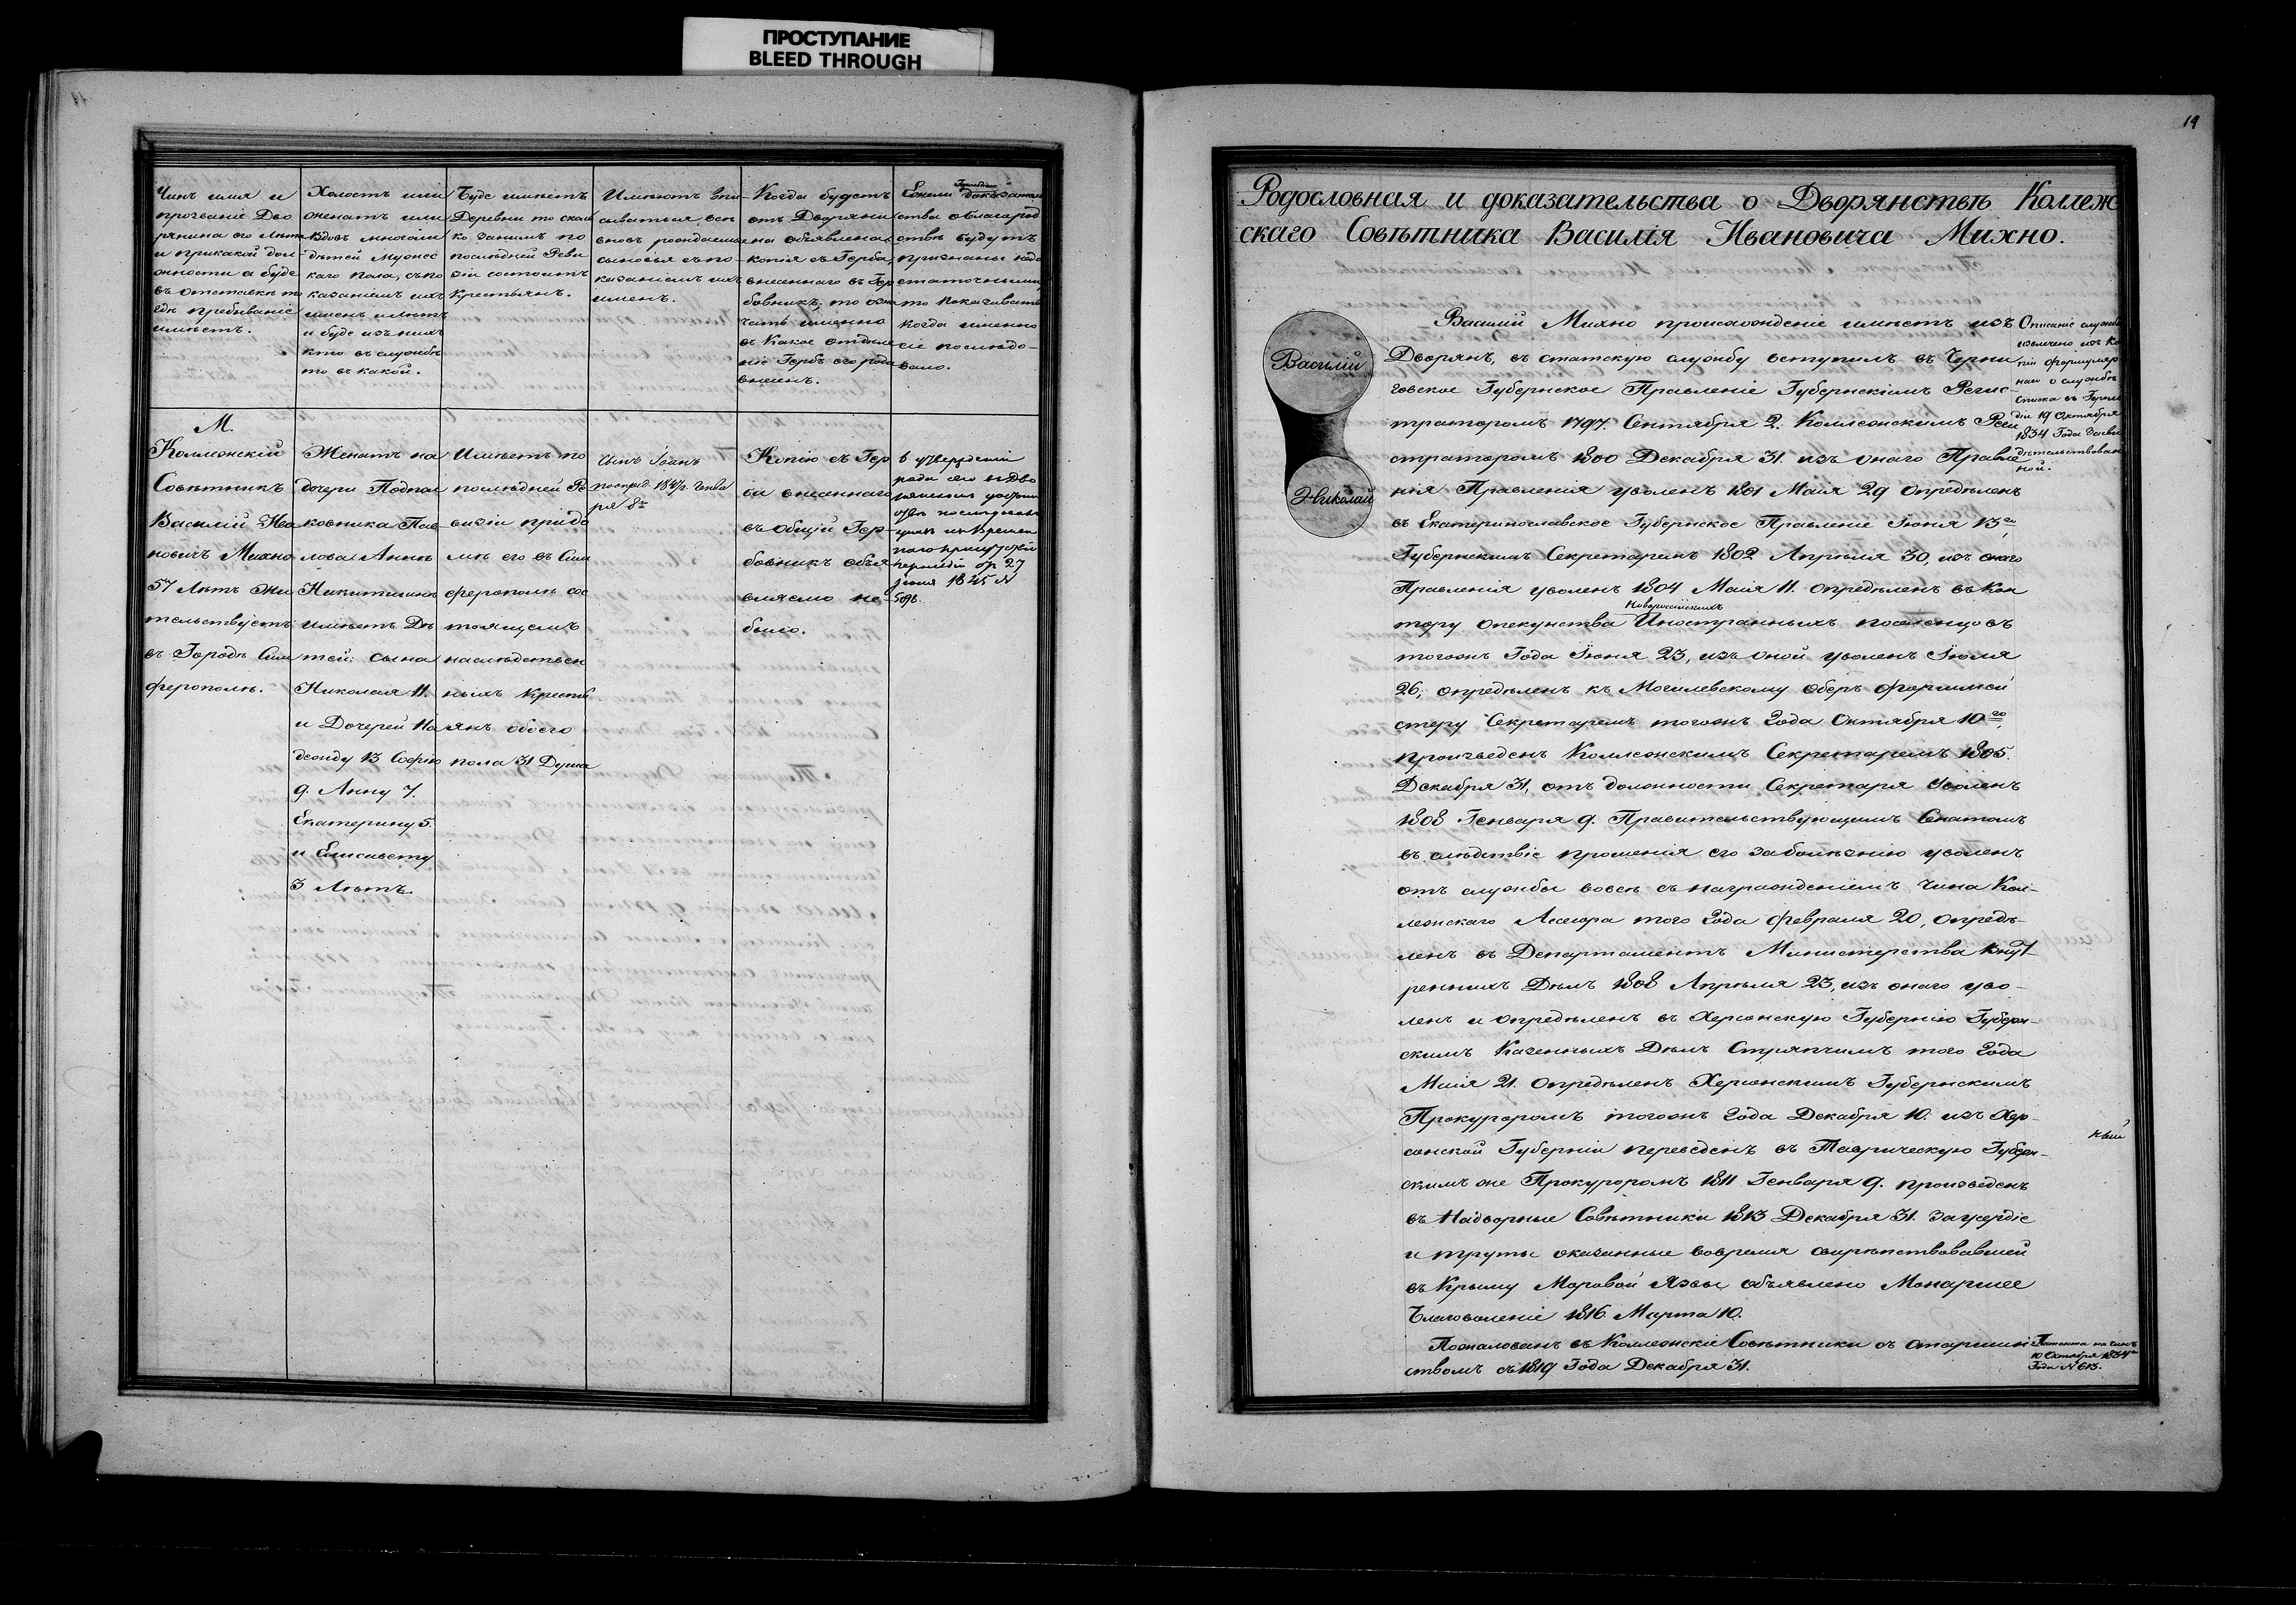 ПРОСТУПАНИЕ
BLEED THROUGH
Чинъ имя и
прозваніе Дво
рянина его Лѣта
и при какой дол
жности а буде
въ отставкѣ то
гдѣ пребываніе
имѣетъ.
Холостъ или
женатъ или
вдовъ многоли
дѣтей Мужес
каго пола, съ по
казаніемъ ихъ
именъ и лѣтъ
и буде изъ нихъ
кто въ службѣ
то въ какой.
Буде имѣетъ
Деревни то сколь
ко заними по
послѣдней Реви
зіи состоитъ
крестьянъ.
Имѣютъ впи
сываться есть
вновь рождаемые
сыновья съ по
казаніемъ ихъ
именъ.
Когда будетъ
отъ Дворяни
на объявлена
копія съ Герба,
внесеннаго въ Гер
бовникъ, то озна
чать именно
въ какое отдѣле
ніе Гербъ его рода
внесенъ.
Ежели доказатель
ства о благород
ствѣ будутъ
признаны недо
статочными,
то показывать
когда именно
сіе послѣдо-
вало.
М.
Коллежскій
Совѣтникъ
Василій Ива
новичъ Михно
57 Лѣтъ Жи
тельствуетъ
въ Городѣ Сим
ферополѣ.
Женатъ на
дочери Подпол
ковника Пав
лова Аннѣ
Никитишнѣ
имѣетъ Дѣ
тей: сына
Николая 11.
и Дочерей На
дежду 13 Софію
9. Анну 7.
Екатерину 5.
и Елисавету
3 Лѣтъ.
Имѣетъ по
послѣдней Ре
визіи при до
мѣ его въ Сим
ферополѣ сос
тоящемъ
наслѣдствен
ныхъ крестьѣ
янъ обоего
пола 31 Душа
сынъ Іоанъ
Копію съ Гер
ба внесеннаго
въ общій Гер-
бовникъ объя
вляемо не
было.
в утвержденіи
рода его въ Дво
27
Іюня 1845 №
19
Родословная и доказательства о Дворянствѣ Коллеж
скаго Совѣтника Василія Ивановича Михно.
Василій
Николай
Василій Михно происхожденіе имѣетъ изъ
Дворянъ, въ статскую службу вступилъ въ Черни
говское Губернское Правленіе Губернскимъ Регис-
траторомъ 1797. Сентября 2. Коллежскимъ Реги
страторомъ 1800 Декабря 31. изъ онаго Правле
нія Правленія уволенъ 1801 Маія 29 опредѣленъ
въ Екатеринославское Губернское Правленіе Іюня 13го
Губернскимъ Секретаремъ 1802 Апрѣля 30, изъ онаго
Правленія уволенъ 1804 Маія 11. опредѣленъ въ Кон
новороссійскихъ
тору опекунства Иностранныхъ поселенцовъ
тогожъ Года Іюня 23, изъ оной уволенъ Іюля
26, опредѣленъ къ Могилевскому оберъ форшмей
стеру Секретаремъ тогожъ Года Октября 10го,
произведенъ Коллежскимъ Секретаремъ 1805.
Декабря 31, отъ должности Секретаря уволенъ
1808 Генваря 9. Правительствующимъ Сенатомъ
въ слѣдствіе прошенія его заболѣзнію уволенъ
отъ службы вовсе съ награжденіемъ чина Кол-
лежскаго Ассесора того Года февраля 20, опредѣ-
ленъ въ Департаментъ Министерства Внут-
реннихъ Дѣлъ 1808 Апрѣля 23, изъ онаго уво-
ленъ и опредѣленъ въ Херсонскую Губернію Губерн-
скимъ Казенныхъ Дѣлъ Стряпчимъ того Года
Маія 21. Опредѣленъ Херсонскимъ Губернскимъ
Прокуроромъ тогожъ Года Декабря 10. изъ Хер-
сонской Губерніи переведенъ въ Таврическую Губерн-
скимъ же Прокуроромъ 1811 Генваря 9. произведенъ
въ Надворные Совѣтники 1813 Декабря 31. За усердіе
и труты оказанные вовремя свирѣпствовавшей
въ Крыму Моровой Язвы объявлено Монаршее
Благоволеніе 1816 Марта 10.
Пожалованъ въ Коллежскіе Совѣтники съ старшин
ствомъ съ 1819 Года Декабря 31.
Описаніе службы
извлечено изъ ко
піи формуляр
наго о службѣ
списка въ Герольдіи
19 Октября
1834 Года засви
дѣтельствован
ной.
Патента на чинъ
10 Октября 1834го
Года №